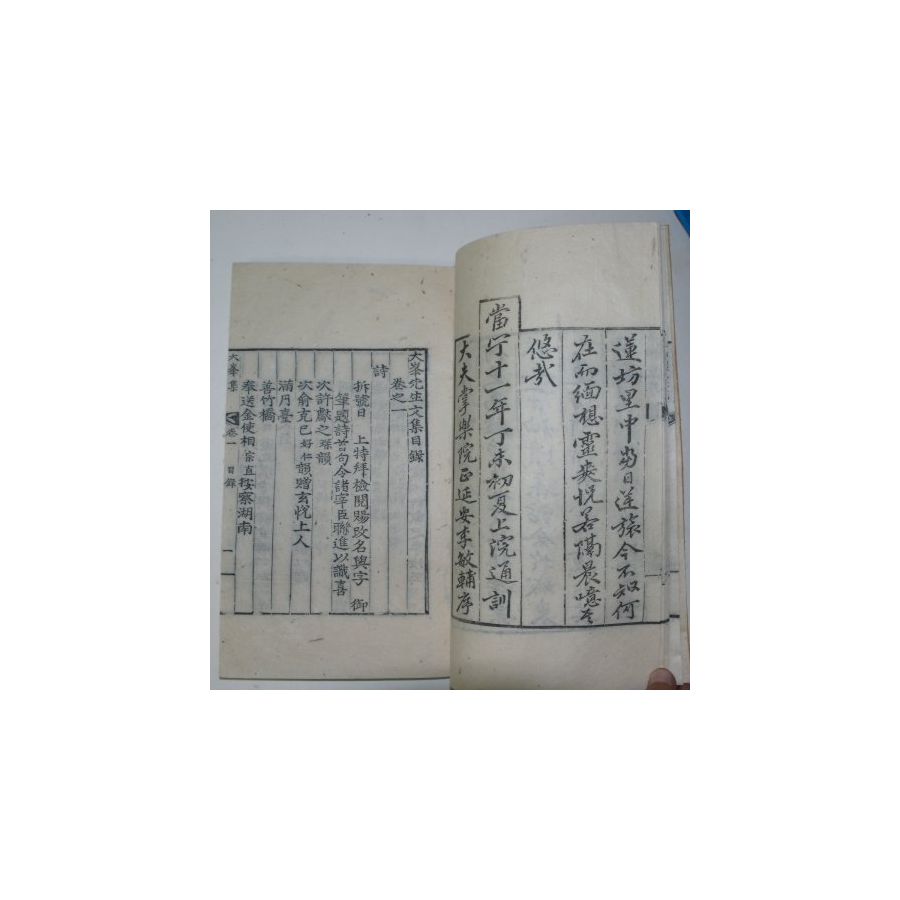 蓮坊里中當日逆旅今不知何
在而緬想靈爽怳若隔晨噫嘻
悠哉
當宁十一年丁未初夏上浣通訓
大夫掌樂院正延安李敏輔序
大峯先生文集目錄
卷之一
詩
拆號日 上特拜檢閱賜改名與字 御
筆題詩首句令諸宰臣聯進以識喜
次許獻之琛韻
次俞克己好仁韻贈玄悅上人
滿月臺
善竹橋
奉送金使相宗直按察湖南
大峯集 卷一 目錄 一